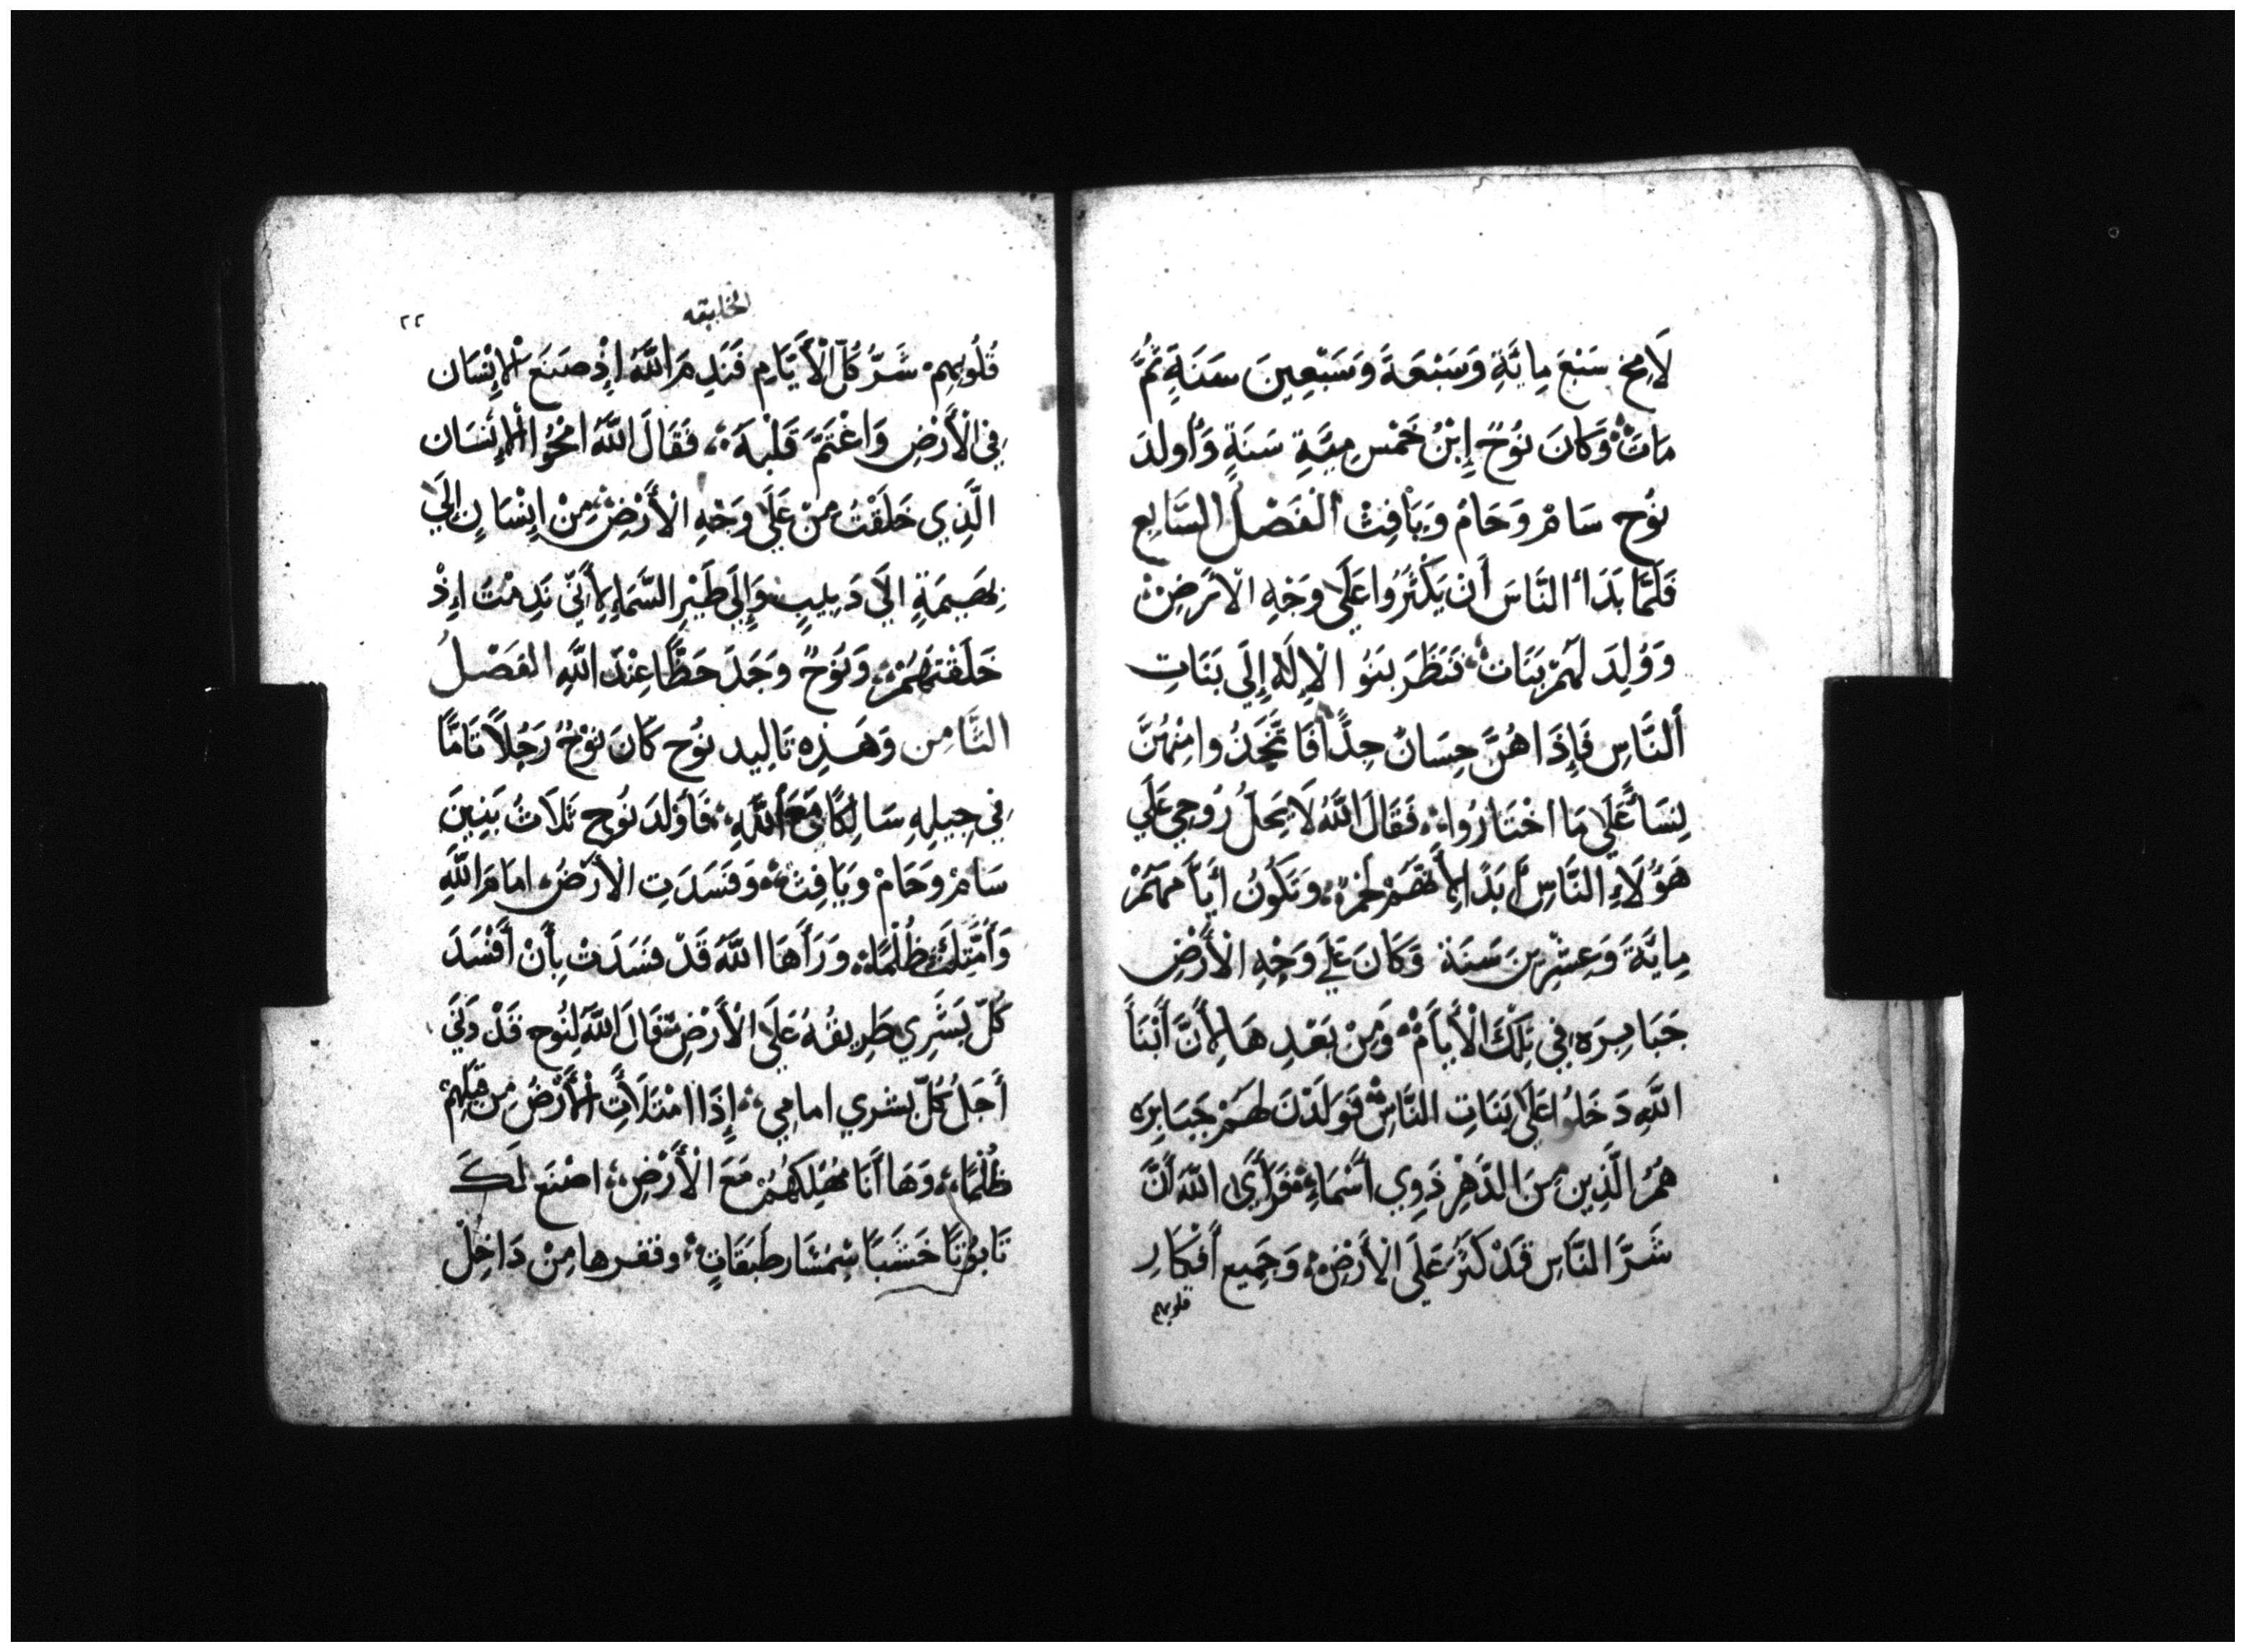 لَامِخ سَبْعَ مِايَّةِ وَسَبْعَةَ وَسَبْعِينَ سَنَةِ ثُمَّ
مَاتَ وَكَانَ نُوُحٌ إِبْنُ خَمْسِ مِيَّةِ سَنَةٍ وَأُولدَ
نوُح سَامْ وَحَامْ وَيَافِتْ الْفَصْلُ السَّابِع
فَلَمَّا بَدَأ النَّاسَ أَن يَكْثَرُوا عَلَى وَجْهِ الْأَرضِ
وَوُلِدَ لَهُمْ بَنَاتْ فَنَظَرَ بَنوُ الْإِلَهِ إِلَى بَنَاتِ
اَلنَّاسِ فَإِذَا هُنَّ حِسَانٌ جِدًّا فَاتَّخَذُوا مِنْهُنَّ
نِسَأً عَلَى مَا اخْتَارُوا فَقَالَ اللَّهُ لَا يَحِلُ رُوحِي عَلَي
هَؤُلَاءِ النَّاسِ أَبَدًا لِأَنَّهُمْ لَحْمٌ وَتَكُونُ أَيَّامَهُمْ
مِايَّةَ وَعِشْرِينَ سَنَة وَكَانَ عَلَى وَجْهِ الْأَرْضِ
جَبَابِرَه فِي تِلْكَ الْأَيَّامْ وَمِنْ بَعْدِهَا لِأَنَّ أَبْنَأَ
اللَّهِ دَخَلُوا عَلَى بَنَاتِ النَّاسْ فَوَلَدْنَ لَهُمْ جَبَابِرَه
هُمُ الَّذِينَ مِنَ الدَّهْرِ ذَوِي أَسْمَاءٍ فَرَأَىَ اللَّهَ أَنَّ
شَرَّ النَّاسِ قَدْ كَثُرَ عَلَى الْأَرْضِ وَجَمِيع أَفْكَارِ
قلوبهم
الخليقه
٢٢
قُلُوبِهِمْ شَرُّ كُلَّ الْأَيَّامِ فَنَدِمَ اللَّهُ إِذْ صَنَعَ الْإِنْسَان
فِي الْأَرْضِ وَاغْتَمَّ قَلْبهُ فَقَالَ اللَّهُ امْحُوُا الْإِنْسَان
الَّذِي خَلَقْتُ مِنْ عَلَى وَجْهِ الْأَرْضِ مِنْ إِنْسَانٍ إِلَى
بَهِيمَةٍ الَى دَبِيبٍ وَإِلَى طَيْرِ السَّمَاءِ لِأَنِّي نَدِمْتُ إِذْ
خَلَقْتَهُمْ وَنوُحٌ وَجَدَ حَظًّا عِنْدَ اللَّهِ الفَصْلُ
الثَّامِن وَهَذِهِ تَاليد نوُح كَانَ نوُحٌ رَجُلاً تَامًّا
فِي جِيلِهِ سَالِكًا مَعَ اللَّهِ فَأَوْلَدَ نُوح ثَلَاثُ بَنِينَ
سَامْ وَحَامْ وَيَافِتْ وَفَسَدَتِ الْأَرْضُ امَامَ اللَّهِ
وَأَمْتِلَتْ ظُلْمًا وَرَأَهَا اللَّهَ قَدْ فَسَدَتْ بِأَنْ أَفْسَدَ
كُلّ بَشَرِي طَرِيقُهُ عَلَى الْأَرْضِ فَقَالَ اللَّهُ لِنُوح قَدْ دَنَى
أَجَلُ كُلّ بشري امامِي إِذَا امْتَلَأَتِ الْأَرْضُ مِن قِبَلِهِمْ
ظُلْمًا وَهَا أَنَا مُهْلِكَهُمْ مَعَ الْأَرْضِ اصْنَع لَكَ
تَابُوُتًا خَشَبًا طَبَقَاتٍ مِنْ دَاخِلْ